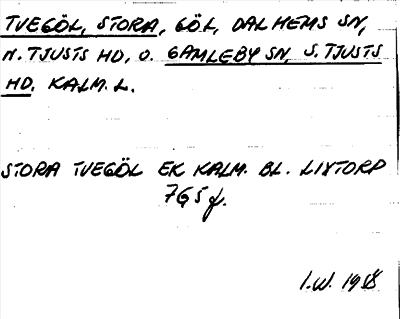 TVEGÖL, STORA, GÖL, DALHEMS SN,
N. TJUSTS HD, O. GAMLEBY SN, S. TJUSTS
HD. KALM. L.
STORA TVEGÖL EK KALM. BL. LIXTORP
7G5f.
I.W. 1958